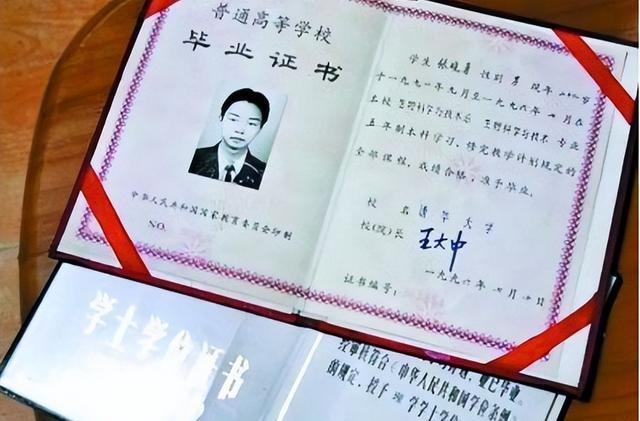 普通高等学校
毕业证书
中华人民共和国国家教育委员会印制
NO.
学生 张晓勇 性别 男 现年 岁
于一九九一年九月至一九九六年七月在
本校 生物科学与技术系 生物科学与技术 专业
五年制本科学习，修完教学计划规定的
全部课程，成绩合格，准予毕业。
校 名 清华大学
校(院)长 王大中
证书编号： 一九九六年七月 日
学士学位证书
业已毕业
经审核符合《中华人民共和国学位条例》
的规定，授予 学学士学位